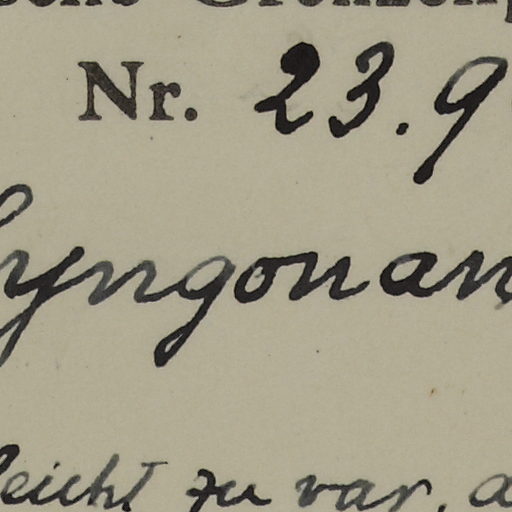 Nr. 23.9
yngonan
leicht zu var. a